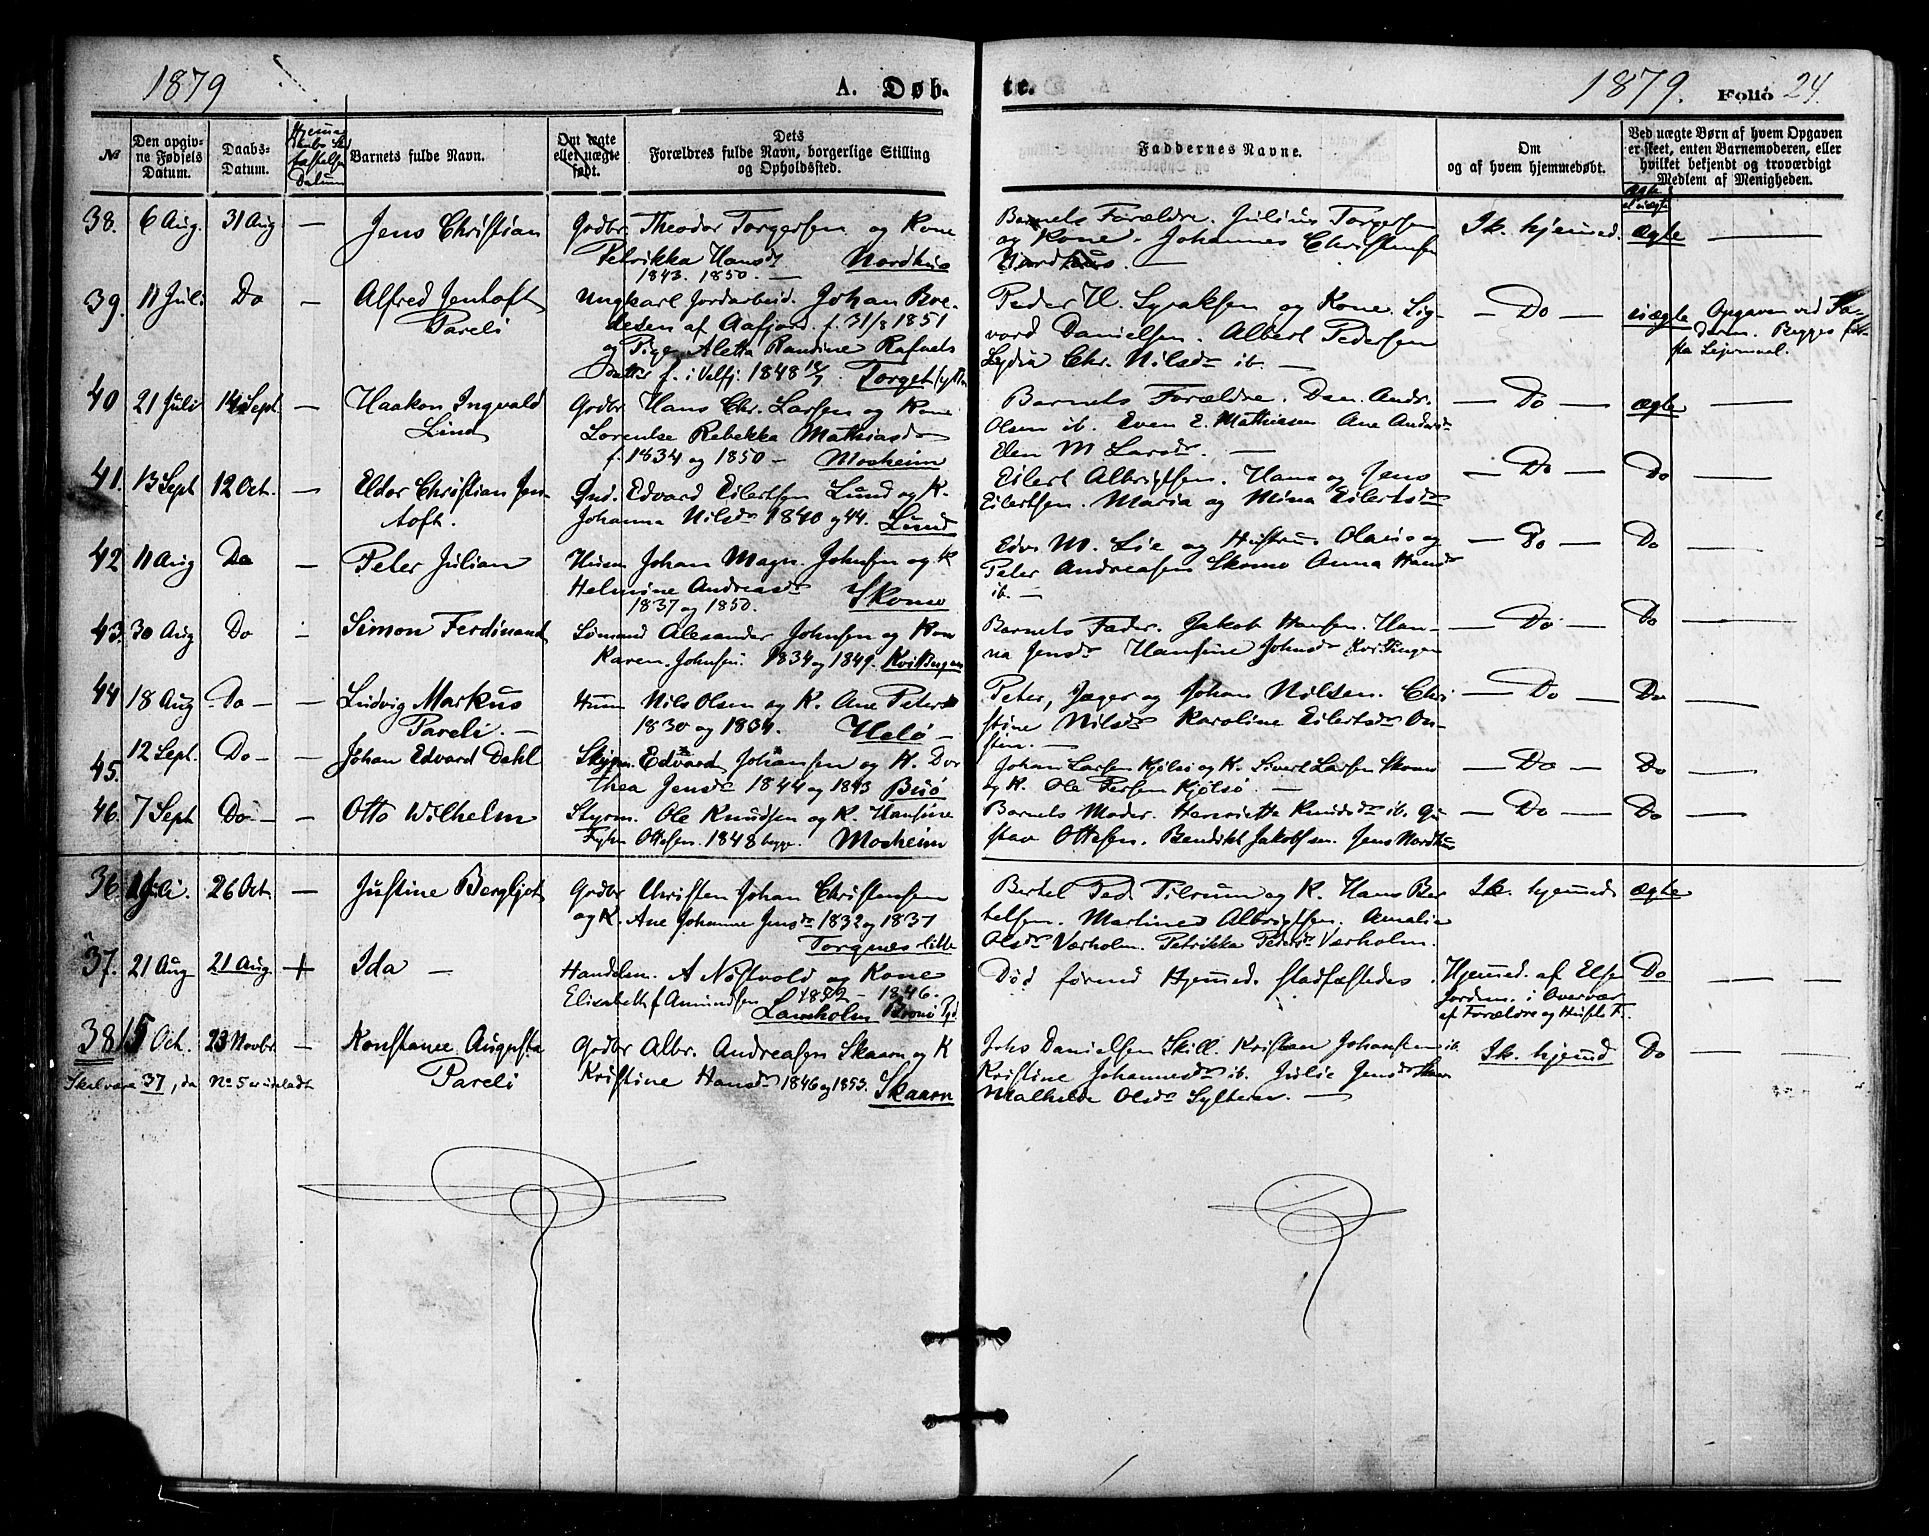 1879
A. Døb-
te.
1879. Folio 24.
№
Den opgiv-
ne Fødsels
Datum.
Daabs-
Datum.
Hjemme
Datum
Barnets fulde Navn.
Om ægte
eller uægte
født.
Dets
Forældres fulde Navn, borgerlige Stilling
og Opholdssted.
Faddernes Navne.
Om
og af hvem hjemmedøbt.
Ved uægte Børn af hvem Opgaven
er skeet, enten Barnemoderen, eller
hvilket bekjendt og troværdigt
Medlem af Menigheden.
38. 6 Aug. 31 Aug — Jens Christian
Gdbr. Theodor Torgersen og Kone
Petrikka Hansd
1843. 1850. — Nordhus
Barnets Forældre. Julius Torgersen
og Kone. Johannes Christensen
Nordhus. —
Sk. hjemmed. ægte —
39. 11 Juli Do — Alfred Jentoft
Pareli
Ungkarl Jordarbeid. Johan Boe-
desen af Aafjord. f. 31/8 1851
og Pige Aletta Randine Rafaels
datter f. i Velfj. 1848 Torget
Peder H. Syraksen og Kone. Sig-
vard Danielsen. Albert Pedersen
Lydia Chr. Nilsdr ib. —
— Do — uægte Opgaven ved Fa-
deren. Begges før-
ste Lejermaal.
40 21 Juli 14 Sept. — Haakon Ingvald
Lind
Gdbr. Hans Chr. Larsen og Kone
Lorentse Rebekka Mathiasdr
f. 1834 og 1850 — Mosheim
Barnets Forældre. Dan. Andr.
Olsen ib. Even E. Mathisen Ane Andersdr
Elen M Larsdr. —
— Do — ægte —
41. 13 Sept 12 Oct. — Eldor Christian Jen-
toft.
Grd. Edvard Eilertsen Lund og K.
Johanna Nilsdr 1840 og 44. Lund
Eilert Albrigtsen. Hans og Jens
Eilertsen. Maria og Mina Eilertsdr
— Do — Do —
42 11 Aug Do — Peter Julian
Husm Johan Magn. Johnsen og K
Helmine Andreasdr
1837 og 1850. Skomo
Edv. M. Lie og Hustru Olava og
Peter Andreasen Skomo Anna Hansdr
ib. —
— Do — Do —
43. 30 Aug Do — Simon Ferdinand
Sømand Alexander Johnsen og Kone
Karen Johnsen. 1834 og 1849. Kvitingen
Barnets Fader. Jakob Hansen. Han-
na Jensdr Hansine Johnsdr Kvitingen
— Do — Do —
44 18 Aug Do — Ludvig Markus
Pareli. —
Husm Nils Olsen og K. Ane Petersdr
1830 og 1834. Helø —
Peter, Jæger og Johan Nilsen. Chri-
stine Nilsdr Karoline Eilertsdr
— Do — Do —
45. 12 Sept. Do — Johan Edvard Dahl
Edvard Johansen og K. Dor
thea Jensdr 1844 og 1843 Buø
Johan Larsen Kjølsø og K. Sivert Larsen Skomo
og K. Ole Persen Kjølsø —
— Do — Do —
46. 7 Sept Do — Otto Wilhelm
Styrm. Ole Knudsen og K. Hansine
Ottesen. 1848 begge. Mosheim
Barnets Moder. Henriette Knudsdr ib. Gu
stav Ottesen. Bendikt Jakobsen. Jens Nordhus
— Do — Do —
36. Juli. 26 Oct — Justine Bergljot
Gdbr Christen Johan Christensen
og K. Ane Johanne Jensdr 1832 og 1837
Torgnes lille
Bertel Ped. Tilrum og K. Hans Ber
telsen. Martinus Albrigtsen. Amalie
Olsdr Værholm. Petrikka Pedersdr Værholm.
Sk. hjemmed ægte
37. 21 Aug 21 Aug. + Ida —
Handelsm. A Nøstvold og Kone
Elisabeth f. Amundsen 1846.
Lamholm Brønø
Død førend Hjemmed. stadfæstedes.
Hjemmed. af Elsen
Jordm. i Overvær
af Forældre og Hustr. F.
Do — —
38 15 Oct. 23 Novbr. — Konstance Augusta
Pareli
Gdbr Albr. Andreasen Skaarn og K
Kristine Hansdr 1846 og 1853. Skaarn
Johs Danielsen Skill. Kristian Johansen ib.
Kristine Johannesdr ib. Julie Jensdr
Mathilde Olsdr Sylteren. —
Sk. hjemmed Do — —
Skal være 37, da No 5 er udeladt